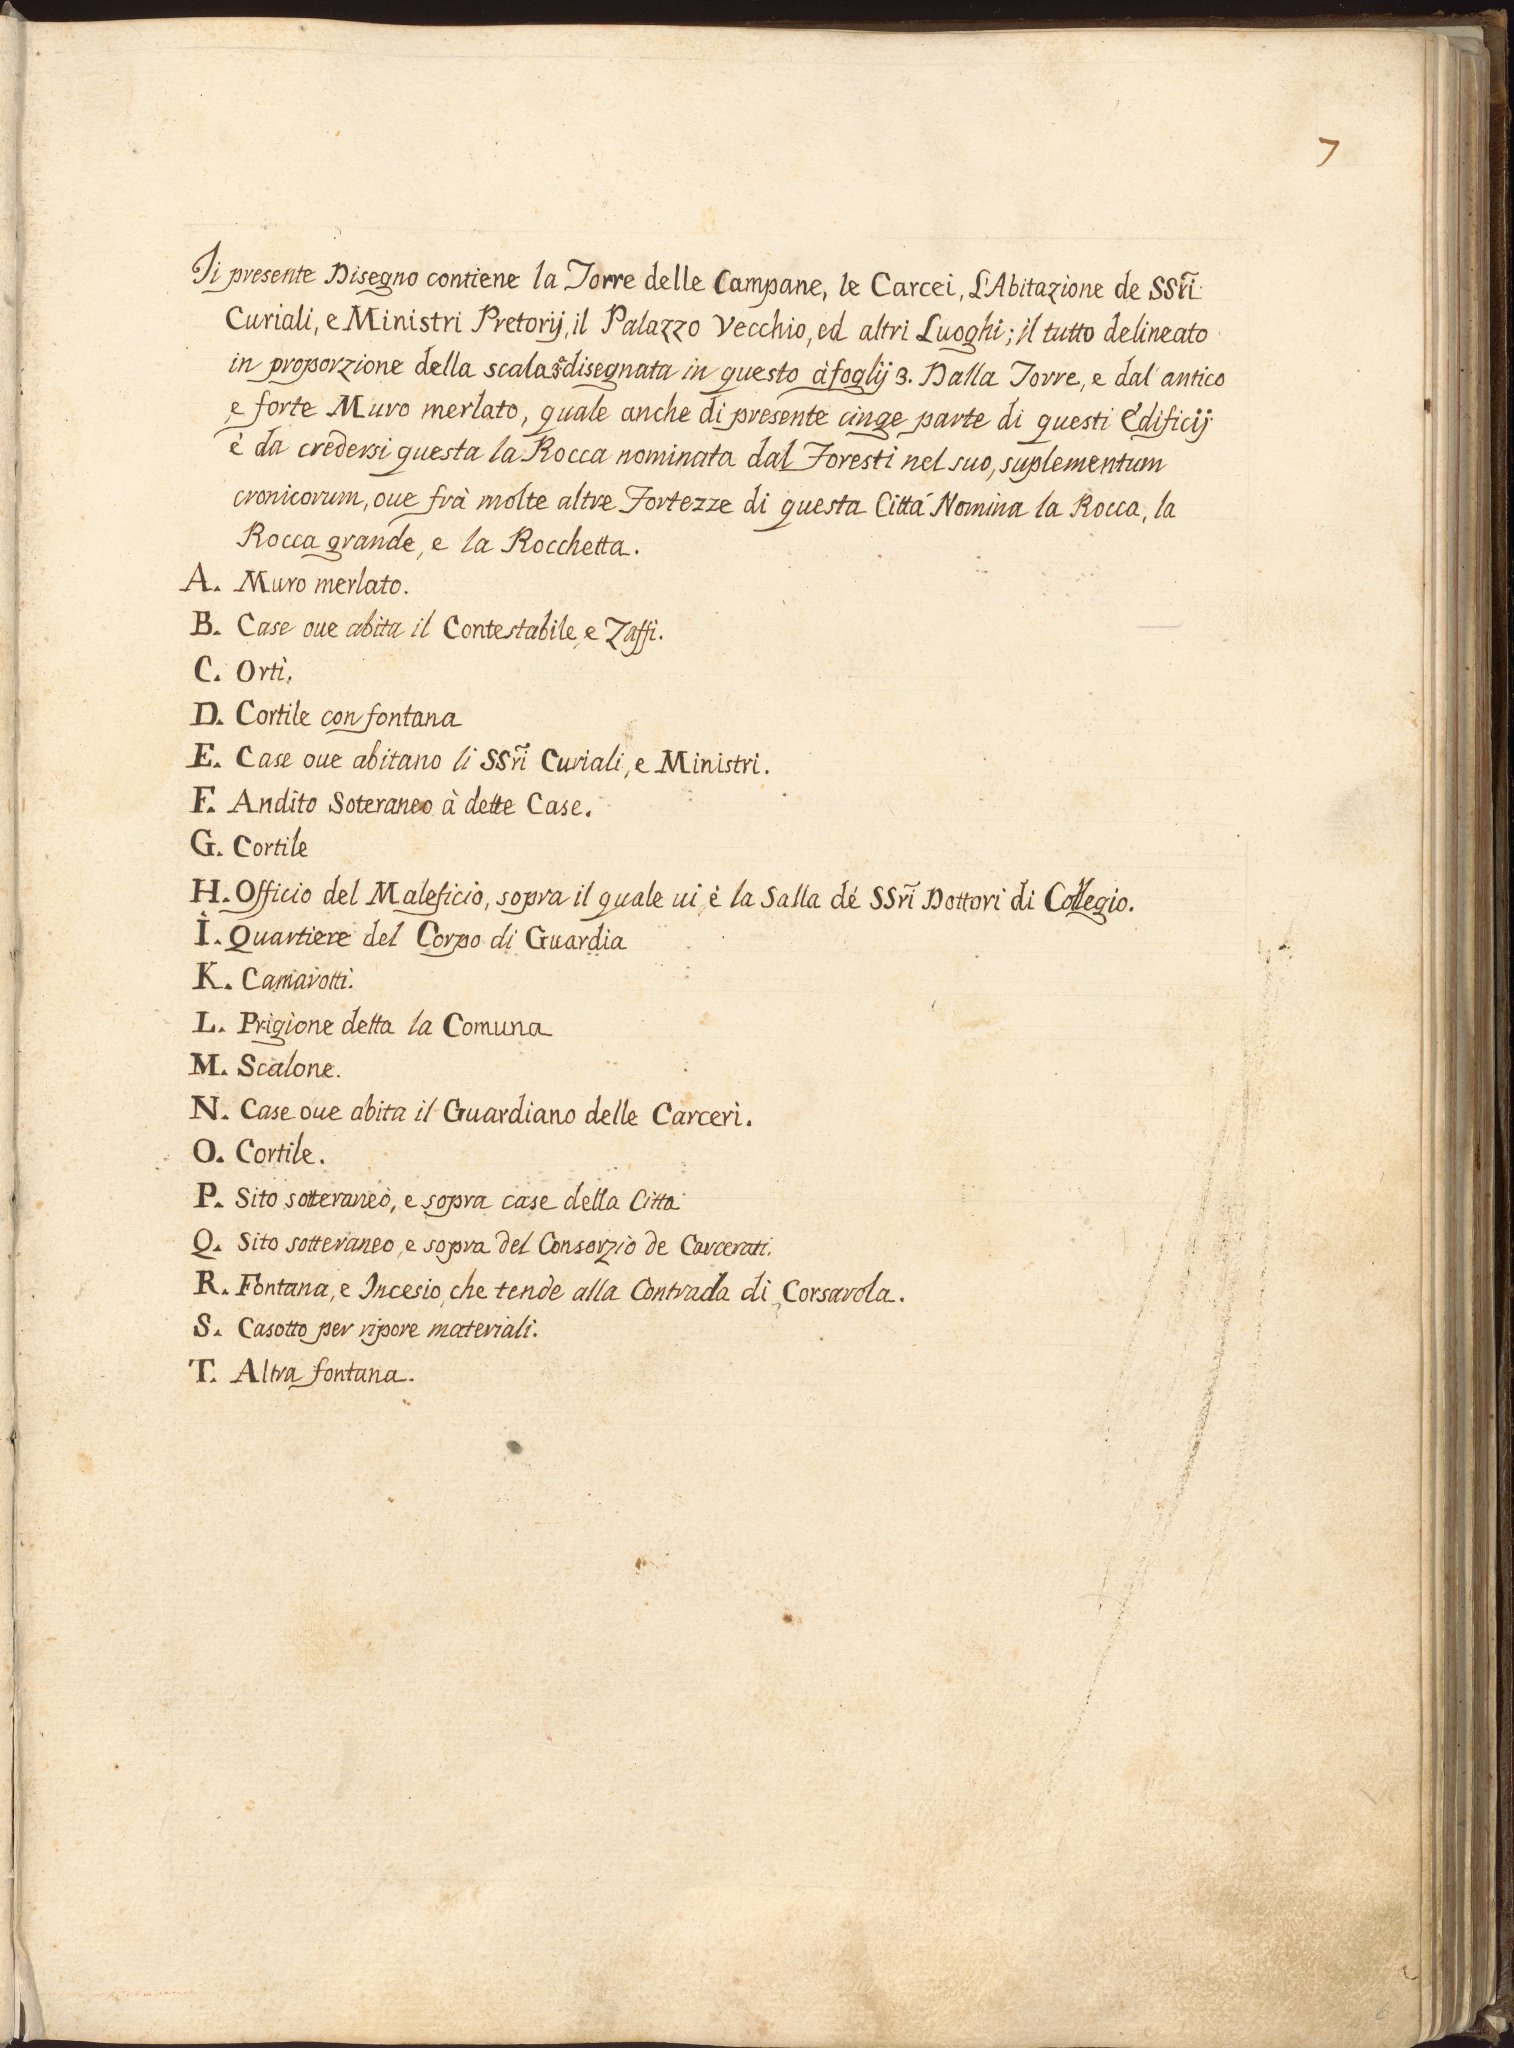 7
Il presente Disegno contiene la Torre delle Campane, le Carcei, L'Abitazione de SSri
Curiali, e Ministri Pretorij, il Palazzo Vecchio, ed altri Luoghi; il tutto delineato
in proporzione della scala disegnata in questo à foglij 3. Dalla Torre, e dal antico
e forte Muro merlato, quale anche di presente cinge parte di questi Edificij
é da credersi questa la Rocca nominata dal Foresti nel suo, suplementum
cronicorum, oue frà molte altre Fortezze di questa Cittá Nomina la Rocca, la
Rocca grande, e la Rocchetta.
A. Muro merlato.
B. Case oue abita il Contestabile, e Zaffi.
C. Orti.
D. Cortile con fontana
E. Case oue abitano li SSri Curiali, e Ministri.
F. Andito Soteraneo à dette Case.
G. Cortile
H. Officio del Maleficio, sopra il quale ui é la Salla dé SSri Dottori di Collegio.
I. Quartiere del Corpo di Guardia
K. Camarotti.
L. Prigione detta la Comuna
M. Scalone.
N. Case oue abita il Guardiano delle Carceri.
O. Cortile.
P. Sito sotteraneo, e sopra case della Citta
Q. Sito sotteraneo, e sopra del Consorzio de Carcerati.
R. Fontana, e Incesio, che tende alla Contrada di Corsarola.
S. Casotto per ripore materiali.
T. Altra fontana.
6